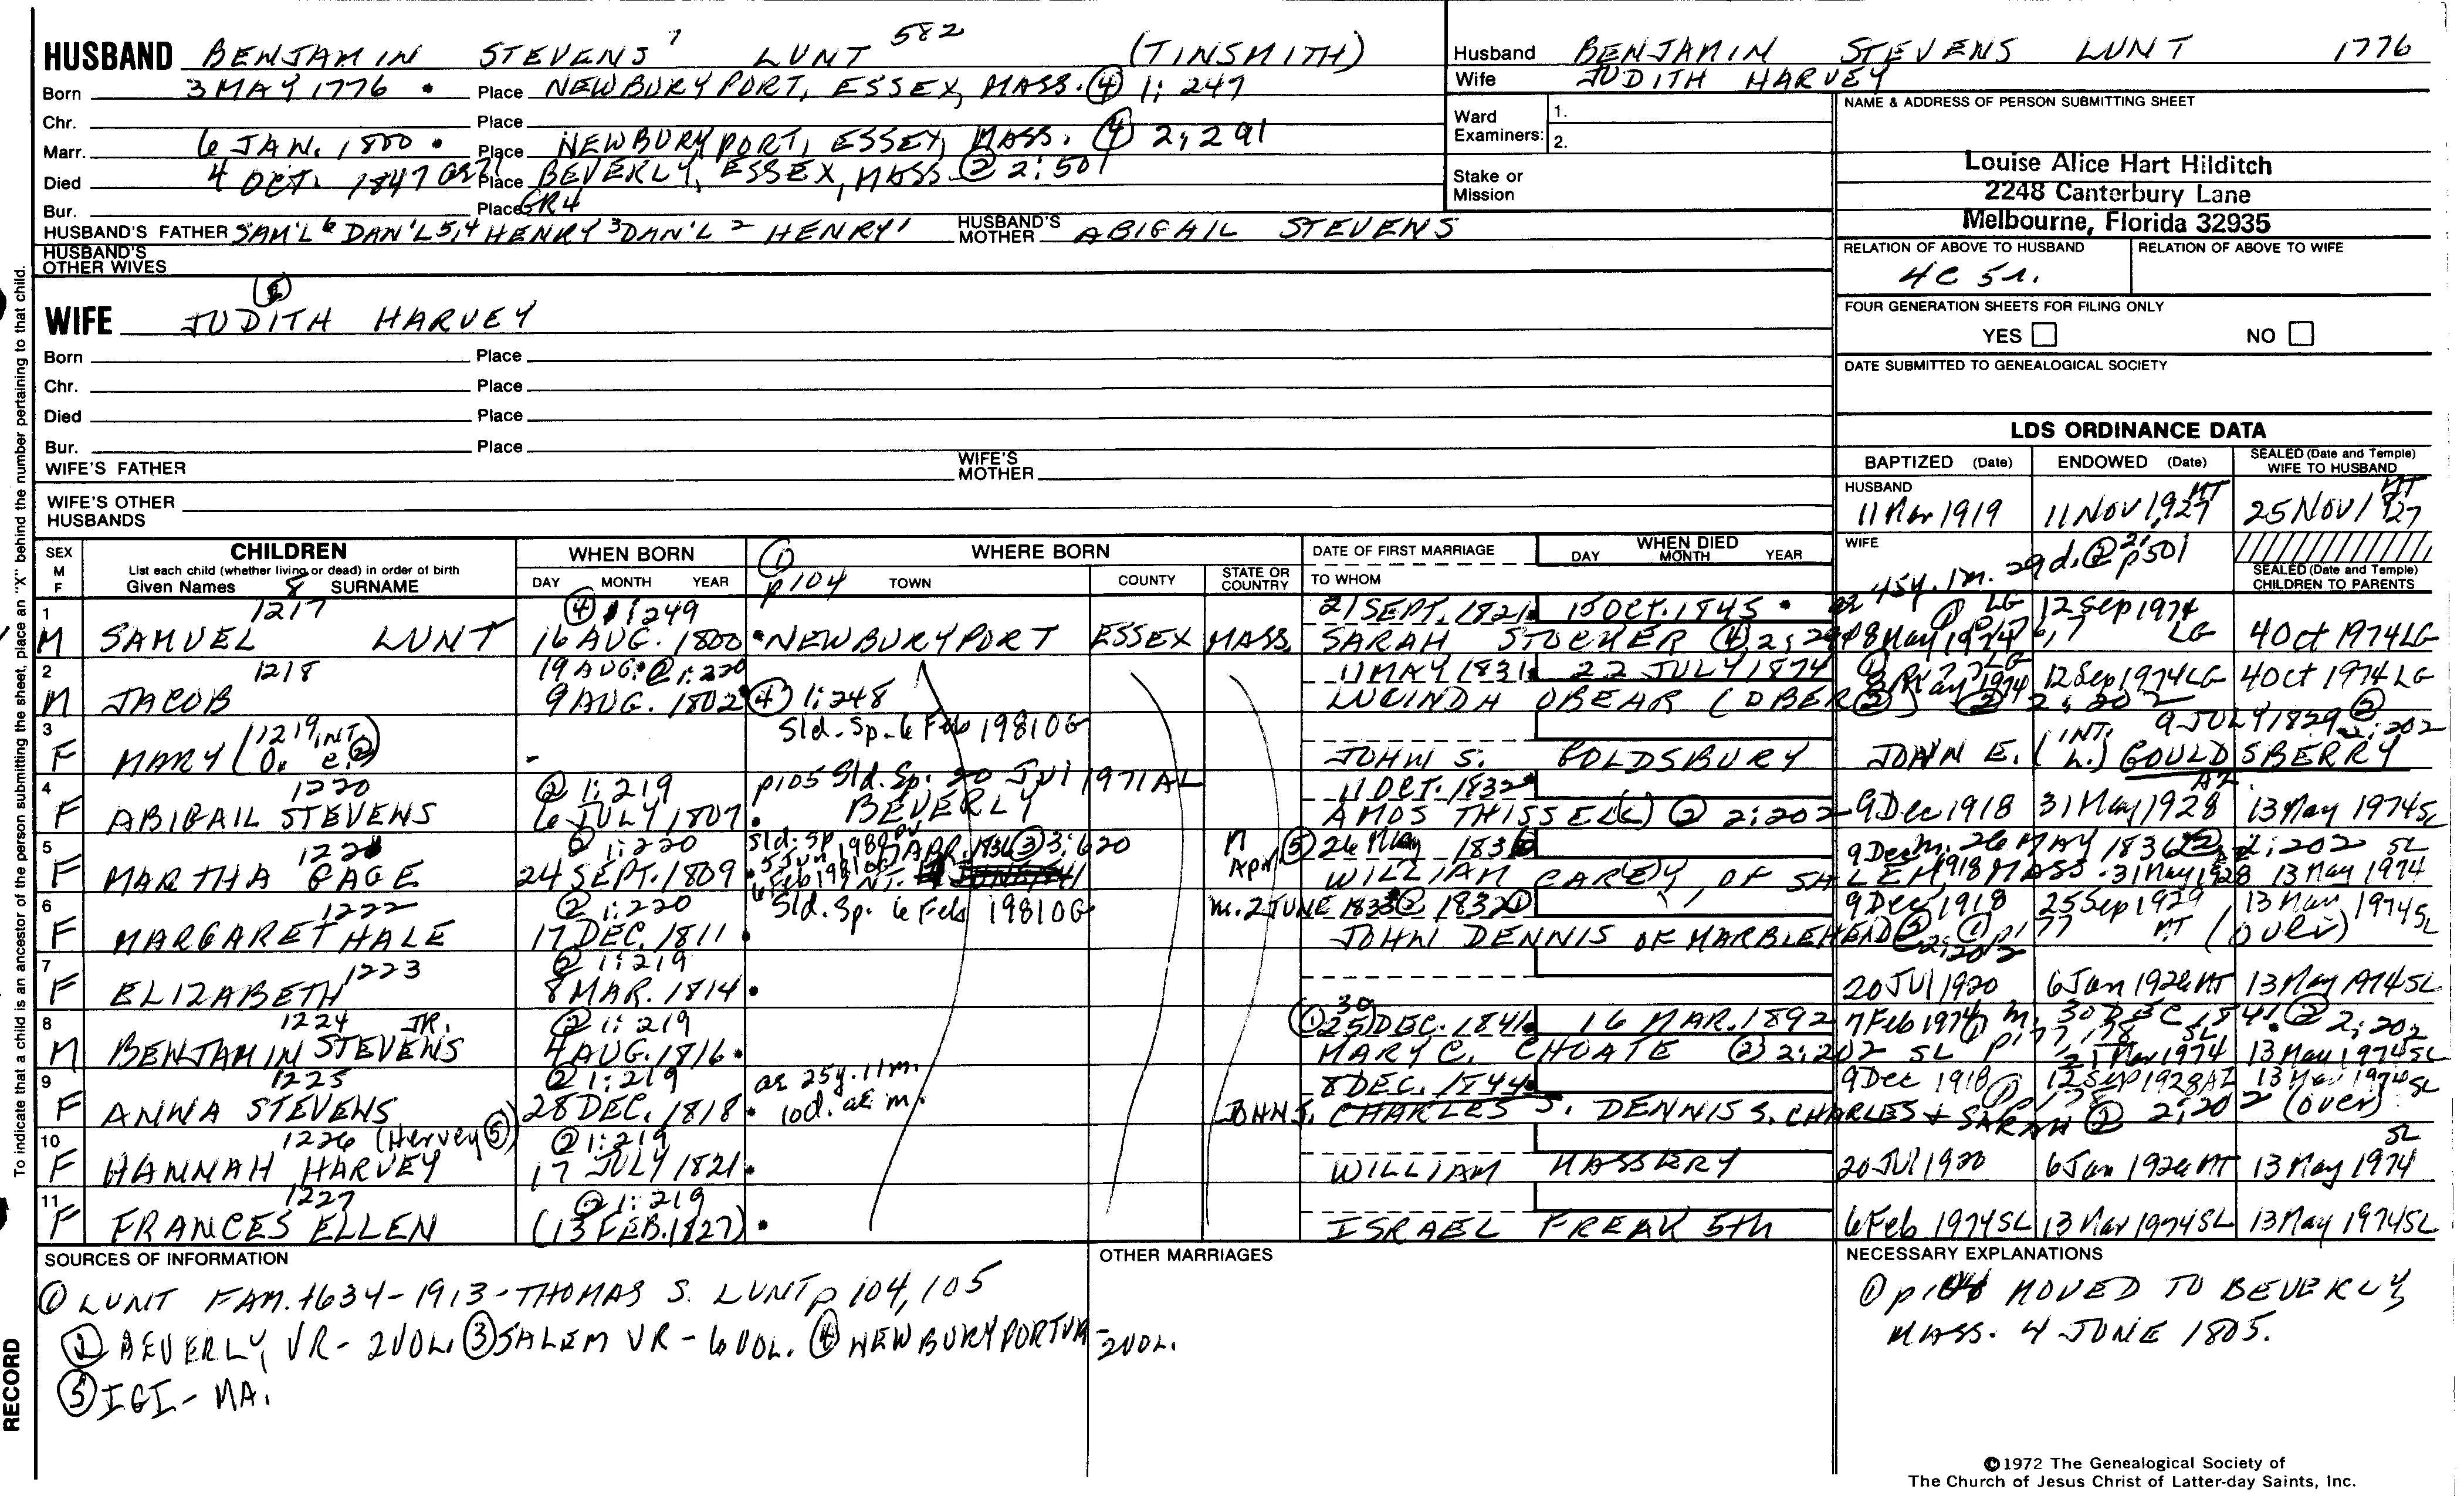 HUSBAND BENJAMIN STEVENS 7 LUNT 582 (TINSMITH)
Born 3 MAY 1776 • Place NEWBURYPORT, ESSEX, MASS. ④ 1: 247
Chr. Place
Marr. 6 JAN. 1800 • Place NEWBURYPORT, ESSEX, MASS. ④ 2; 291
Died 4 OCT. 1847 Place BEVERLY, ESSEX, MASS ② 2: 501
Bur. Place GR4
HUSBAND'S FATHER SAM'L 6 DAN'L 5,4 HENRY 3 DAN'L 2 HENRY 1 HUSBAND'S MOTHER ABIGAIL STEVENS
HUSBAND'S OTHER WIVES
WIFE JUDITH HARVEY
Born Place
Chr. Place
Died Place
Bur. Place
WIFE'S FATHER WIFE'S MOTHER
WIFE'S OTHER HUSBANDS
Husband BENJAMIN STEVENS LUNT 1776
Wife JUDITH HARVEY
Ward Examiners: 1.
2.
Stake or Mission
NAME & ADDRESS OF PERSON SUBMITTING SHEET
Louise Alice Hart Hilditch
2248 Canterbury Lane
Melbourne, Florida 32935
RELATION OF ABOVE TO HUSBAND RELATION OF ABOVE TO WIFE
4C 5r.
FOUR GENERATION SHEETS FOR FILING ONLY
YES NO
DATE SUBMITTED TO GENEALOGICAL SOCIETY
LDS ORDINANCE DATA
BAPTIZED (Date) ENDOWED (Date) SEALED (Date and Temple) WIFE TO HUSBAND
HUSBAND
11 Mar 1919 11 NOV 1927 MT 25 NOV 1927 MT
WIFE
45y. 1m. 29d. ② 2; p501
SEALED (Date and Temple) CHILDREN TO PARENTS
SEX M F CHILDREN WHEN BORN WHERE BORN DATE OF FIRST MARRIAGE WHEN DIED
List each child (whether living or dead) in order of birth
Given Names 8 SURNAME DAY MONTH YEAR ① p104 TOWN COUNTY STATE OR COUNTRY TO WHOM DAY MONTH YEAR
1 1217 ④ 1249 21 SEPT. 1821 15 OCT. 1845 • LG 12 Sep 1974
M SAMUEL LUNT 16 AUG. 1800 • NEWBURYPORT ESSEX MASS. SARAH STOCKER ④ 2; 8 May 1974 LG 4 Oct 1974 LG
2 1218 19 AUG. ② 1: 220 11 MAY 1831 22 JULY 1874
M JACOB 9 AUG. 1802 ④ 1: 248 LUCINDA OBEAR (OBER ②) ② 2; 202 8 May 1974 12 Sep 1974 LG 4 Oct 1974 LG
3 1219 INT. Sld. Sp. 6 Feb 1981 OG INT. 9 JULY 1829 ② 2:202
F MARY (O. c. ②) - JOHN S. GOLDSBURY JOHN E. (h.) GOULDSBERRY
4 1220 ② 1: 219 p105 Sld. Sp. 20 Jul 1971 AL 11 OCT. 1832 AZ
F ABIGAIL STEVENS 6 JULY 1807 • BEVERLY AMOS THISSEL(L) ② 2: 202 9 Dec 1918 31 May 1928 13 May 1974 SL
5 ② 1: 220 Sld. Sp 5 Jun 1980 APR. 1836 ③ 3: 620 ⑤ 26 May 1836 m. 26 MAY 1836 ② 2: 202 SL
F MARTHA GAGE 24 SEPT. 1809 • 6 Feb 1981 OG INT. WILLIAM CAREY, OF SALEM MASS. 9 Dec 1918 31 May 1928 13 May 1974
6 1222 ② 1: 220 Sld. Sp. 6 Feb 1981 OG m. 2 JUNE 1833 ② 1832 ① 9 Dec 1918 25 Sep 1929 13 May 1974 SL
F MARGARET HALE 17 DEC. 1811 • JOHN DENNIS OF MARBLEHEAD ② 2; 202 ① p177 MT (over)
7 1223 ② 1: 219
F ELIZABETH 8 MAR. 1814 • 20 Jul 1920 6 Jan 1926 MT 13 May 1974 SL
8 1224 JR. ② 1: 219 ① 25 30 DEC. 1841 16 MAR. 1892 7 Feb 1974 m. 30 DEC 1841 ② 2; 202
M BENJAMIN STEVENS 4 AUG. 1816 • MARY C. CHOATE ② 2: 202 SL 21 Mar 1974 13 May 1974 SL
9 1225 ② 1: 219 ae 25y. 11m. 8 DEC. 1844 9 Dec 1918 12 Sep 1928 AZ 13 May 1974 SL
F ANNA STEVENS 28 DEC. 1818 • 10d. at m. JOHN S. CHARLES S. DENNIS S. CHARLES & SARAH ② 2; 202 (over)
10 1226 (Hervey ⑤) ② 1: 219 SL
F HANNAH HARVEY 17 JULY 1821 • WILLIAM MASSERY 20 Jul 1920 6 Jan 1926 MT 13 May 1974
11 1227 ② 1: 219
F FRANCES ELLEN (13 FEB. 1827) • ISRAEL FREAK 5th 6 Feb 1974 SL 13 Mar 1974 SL 13 May 1974 SL
SOURCES OF INFORMATION
① LUNT FAM. 1634-1913 - THOMAS S. LUNT p 104, 105
② BEVERLY, VR - 2 VOL. ③ SALEM VR - 6 VOL. ④ NEWBURYPORT VR - 2 VOL.
⑤ IGI - MA.
OTHER MARRIAGES
NECESSARY EXPLANATIONS
① p104 MOVED TO BEVERLY,
MASS. 4 JUNE 1805.
©1972 The Genealogical Society of
The Church of Jesus Christ of Latter-day Saints, Inc.
To indicate that a child is an ancestor of the person submitting the sheet, place an "X" behind the number pertaining to that child.
RECORD